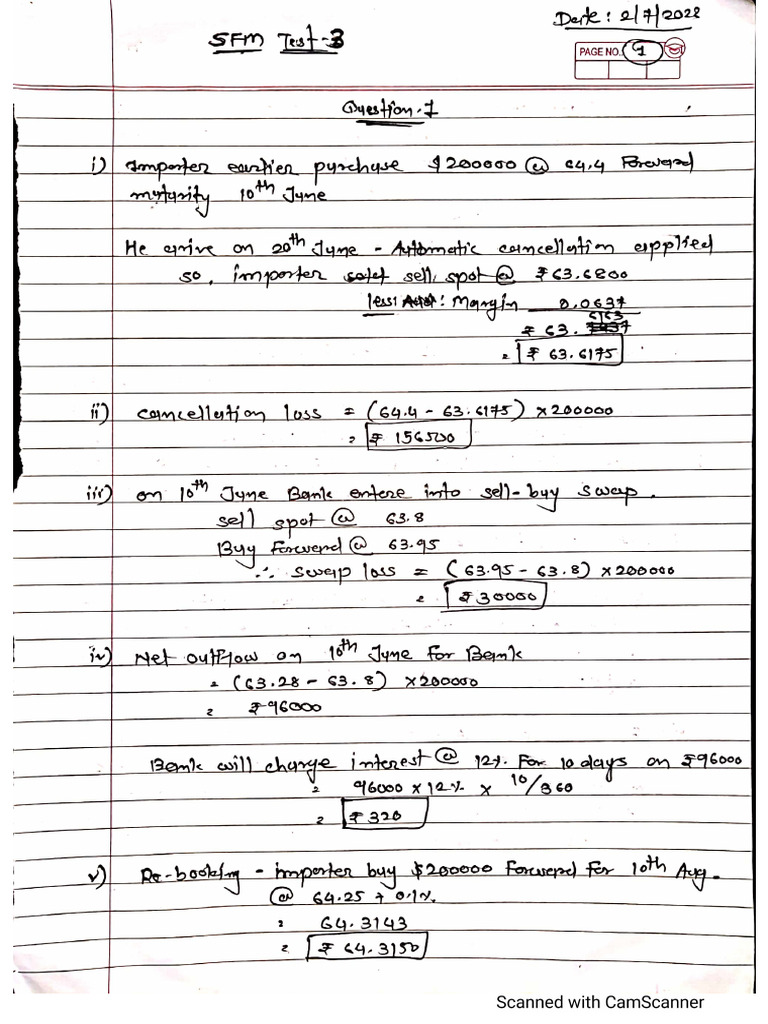 Date: 2/7/2022
SFM Test-3
PAGE NO. 1
Question-1
i) Importer earlier purchase $200000 @ 64.4 Forward
maturity 10th June
He arrive on 20th June - Automatic cancellation applied
so, importer sell, spot @ ₹63.6800
less: Margin 0.0637
₹ 63. 6163
= ₹ 63.6175
ii) cancellation loss = (64.4 - 63.6175) x 200000
= ₹ 156500
iii) on 10th June Bank entere into sell-buy swap.
sell spot @ 63.8
Buy Forward @ 63.95
∴ swap loss = (63.95 - 63.8) x 200000
= ₹30000
iv) Net outflow on 10th June for Bank
= (63.28 - 63.8) x 200000
= ₹96000
Bank will charge interest @ 12% For 10 days on ₹96000
= 96000 x 12% x 10/360
= ₹320
v) Re-booking - importer buy $200000 Forward for 10th Aug.
@ 64.25 + 0.1%
= 64.3143
= ₹ 64.3150
Scanned with CamScanner